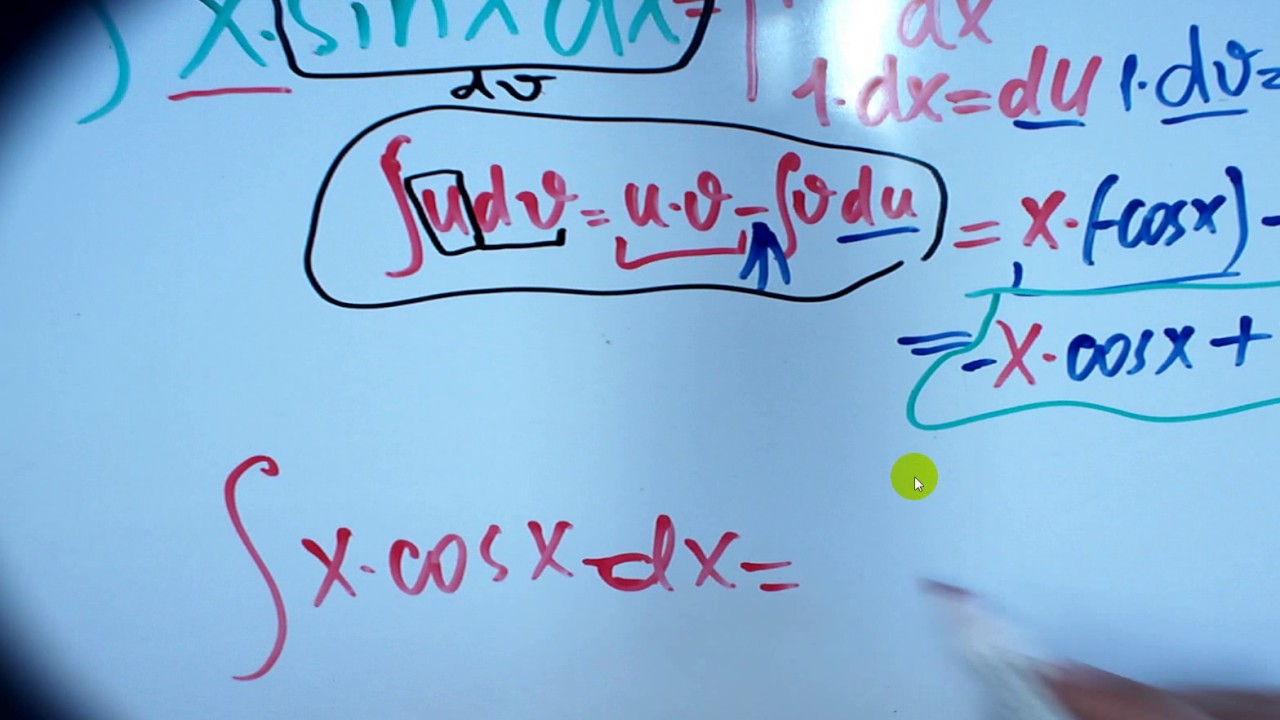 ∫ x·sinx dx =
dx
dv
1·dx=du 1·dv=
∫udv = u·v-∫vdu
= x·(-cosx) -
= -x·cosx +
∫ x·cosx dx =